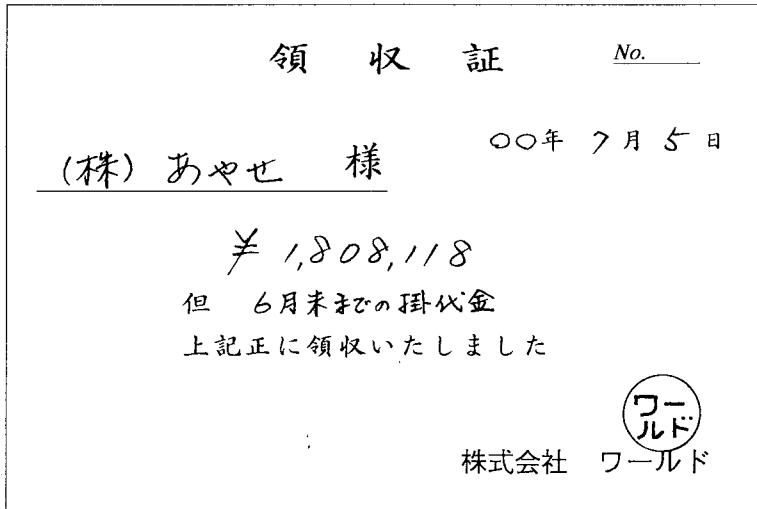 領収証 No.
〇〇年 7月 5日
(株) あやせ 様
¥ 1,808,118
但 6月末までの掛代金
上記正に領収いたしました
ワー
ルド
株式会社 ワールド